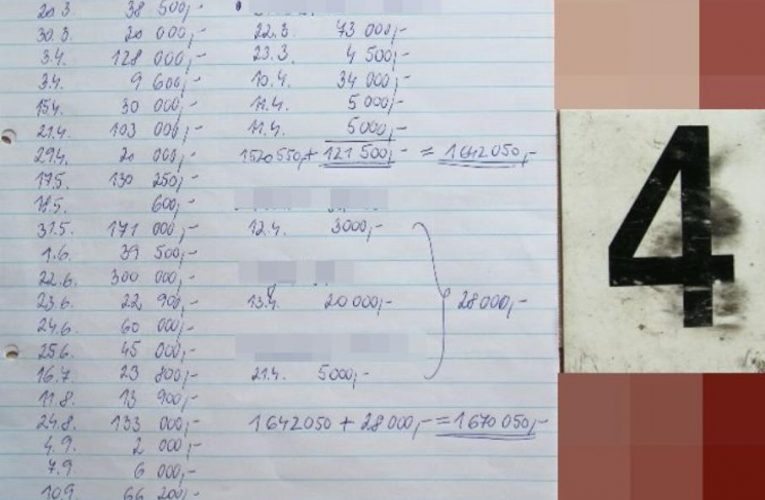 20.3. 38 500,-
30.3. 20 000,-
3.4. 128 000,-
3.4. 9 600,-
15.4. 30 000,-
21.4. 103 000,-
29.4. 20 000,-
17.5. 130 250,-
18.5. 600,-
31.5. 171 000,-
1.6. 39 500,-
22.6. 300 000,-
23.6. 22 900,-
24.6. 60 000,-
25.6. 45 000,-
16.7. 23 800,-
11.8. 13 900,-
24.8. 133 000,-
4.9. 2 000,-
7.9 6 000,-
10.9. 66 200,-
22.3. 73 000,-
23.3. 4 500,-
10.4. 34 000,-
11.4. 5 000,-
11.4. 5 000,-
1520 550,- + 121 500,- = 1 642 050,-
12.4. 3000,-
13.4. 20 000,- 28 000,-
21.4. 5000,-
1 642 050 + 28 000,- = 1 670 050,-
4